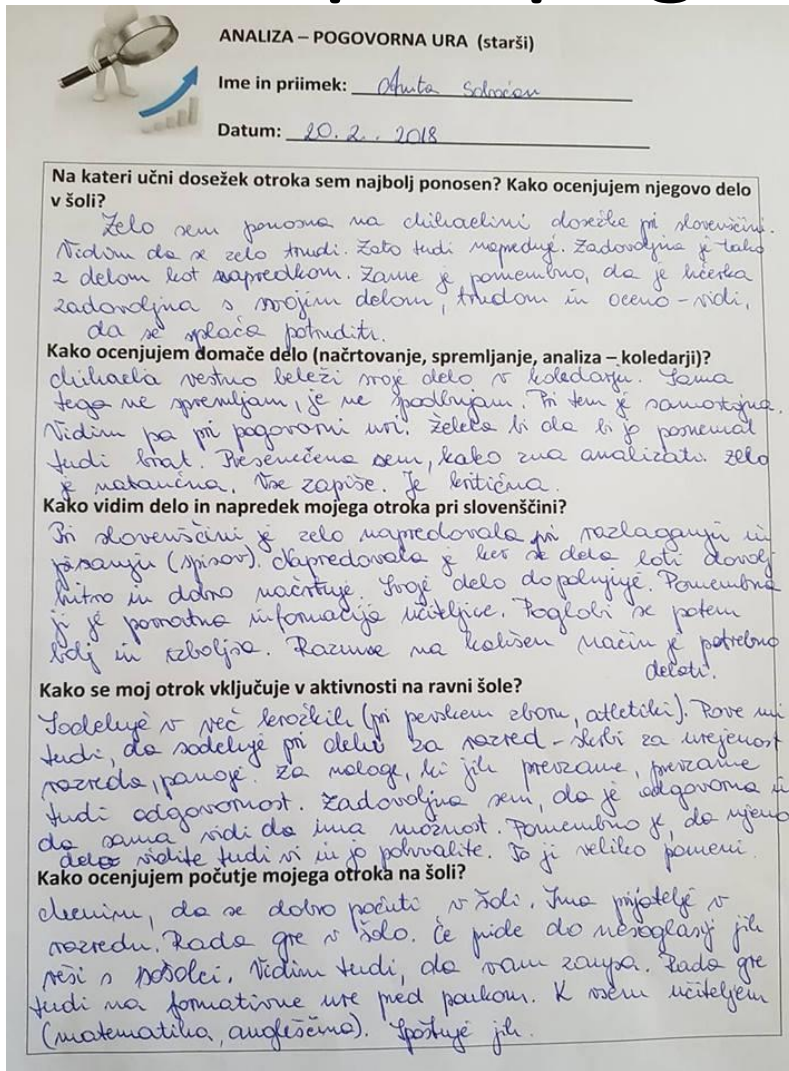 ANALIZA – POGOVORNA URA (starši)
Ime in priimek: Anita
Datum: 20. 2. 2018
Na kateri učni dosežek otroka sem najbolj ponosen? Kako ocenjujem njegovo delo
v šoli?
Zelo sem ponosna na Mihaelini dosežke pri slovenščini.
Vidim da se zelo trudi. Zato tudi napreduje. Zadovoljna je tako
z delom kot napredkom. Zame je pomembno, da je hčerka
zadovoljna s svojim delom, trudom in oceno - vidi,
da se splača potruditi.
Kako ocenjujem domače delo (načrtovanje, spremljanje, analiza – koledarji)?
Mihaela vestno beleži svoje delo v koledarju. Sama
tega ne spremljam, je ne spodbujam. Pri tem je samostojna.
Vidim pa pri pogovorni uri. Želela bi da bi jo posnemal
tudi brat. Presenečena sem, kako zna analizirati. Zelo
je natančna. Vse zapiše. Je kritična.
Kako vidim delo in napredek mojega otroka pri slovenščini?
Pri slovenščini je zelo napredovala pri razlaganju in
pisanju (spisov). Napredovala je ker se dela loti dovolj
hitro in dobro načrtuje. Svoje delo dopolnjuje. Pomembna
ji je povratna informacija učiteljice. Poglobi se potem
bolj in izboljša. Razume na kakšen način je potrebno
delati.
Kako se moj otrok vključuje v aktivnosti na ravni šole?
Sodeluje v več krožkih (pri pevskem zboru, atletiki). Pove mi
tudi, da sodeluje pri delu za razred - skrbi za urejenost
razreda, panoje. Za naloge, ki jih prevzame, prevzame
tudi odgovornost. Zadovoljna sem, da je odgovorna in
da sama vidi da ima možnost. Pomembno je, da njeno
delo vidite tudi vi in jo pohvalite. To ji veliko pomeni.
Kako ocenjujem počutje mojega otroka na šoli?
Menim, da se dobro počuti v šoli. Ima prijatelje v
razredu. Rada gre v šolo. Če pride do nesoglasij jih
reši s sošolci. Vidim tudi, da vam zaupa. Rada gre
tudi na formativne ure pred poukom. K vsem učiteljem
(matematika, angleščina). Spoštuje jih.